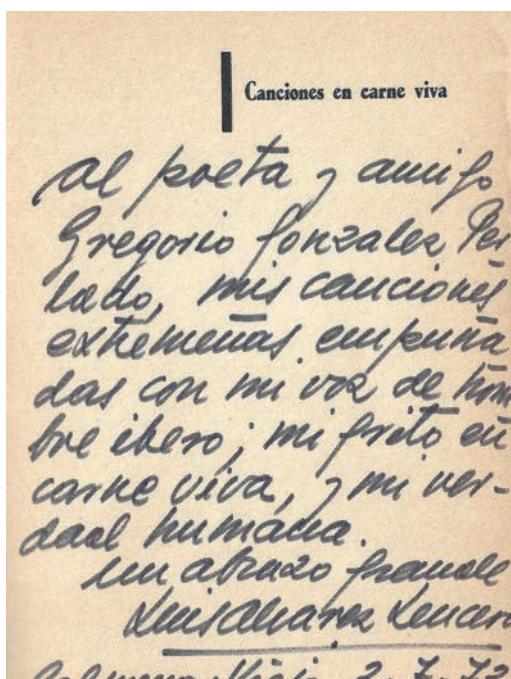 Canciones en carne viva
al poeta y amigo
Gregorio Gonzalez Per
lado, mis canciones
extremeñas empuña
das con mi voz de hom
bre ibero; mi grito en
carne viva, y mi ver-
dad humana.
un abrazo grande
Luis Alvarez Lencero
Colmenar Viejo 2-7-72